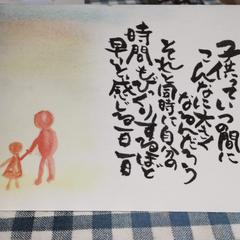 子供っていつの間に
こんなに大きく
なるんだろう
それと同時に自分の
時間もびっくりするほど
早いと感じる一日一日